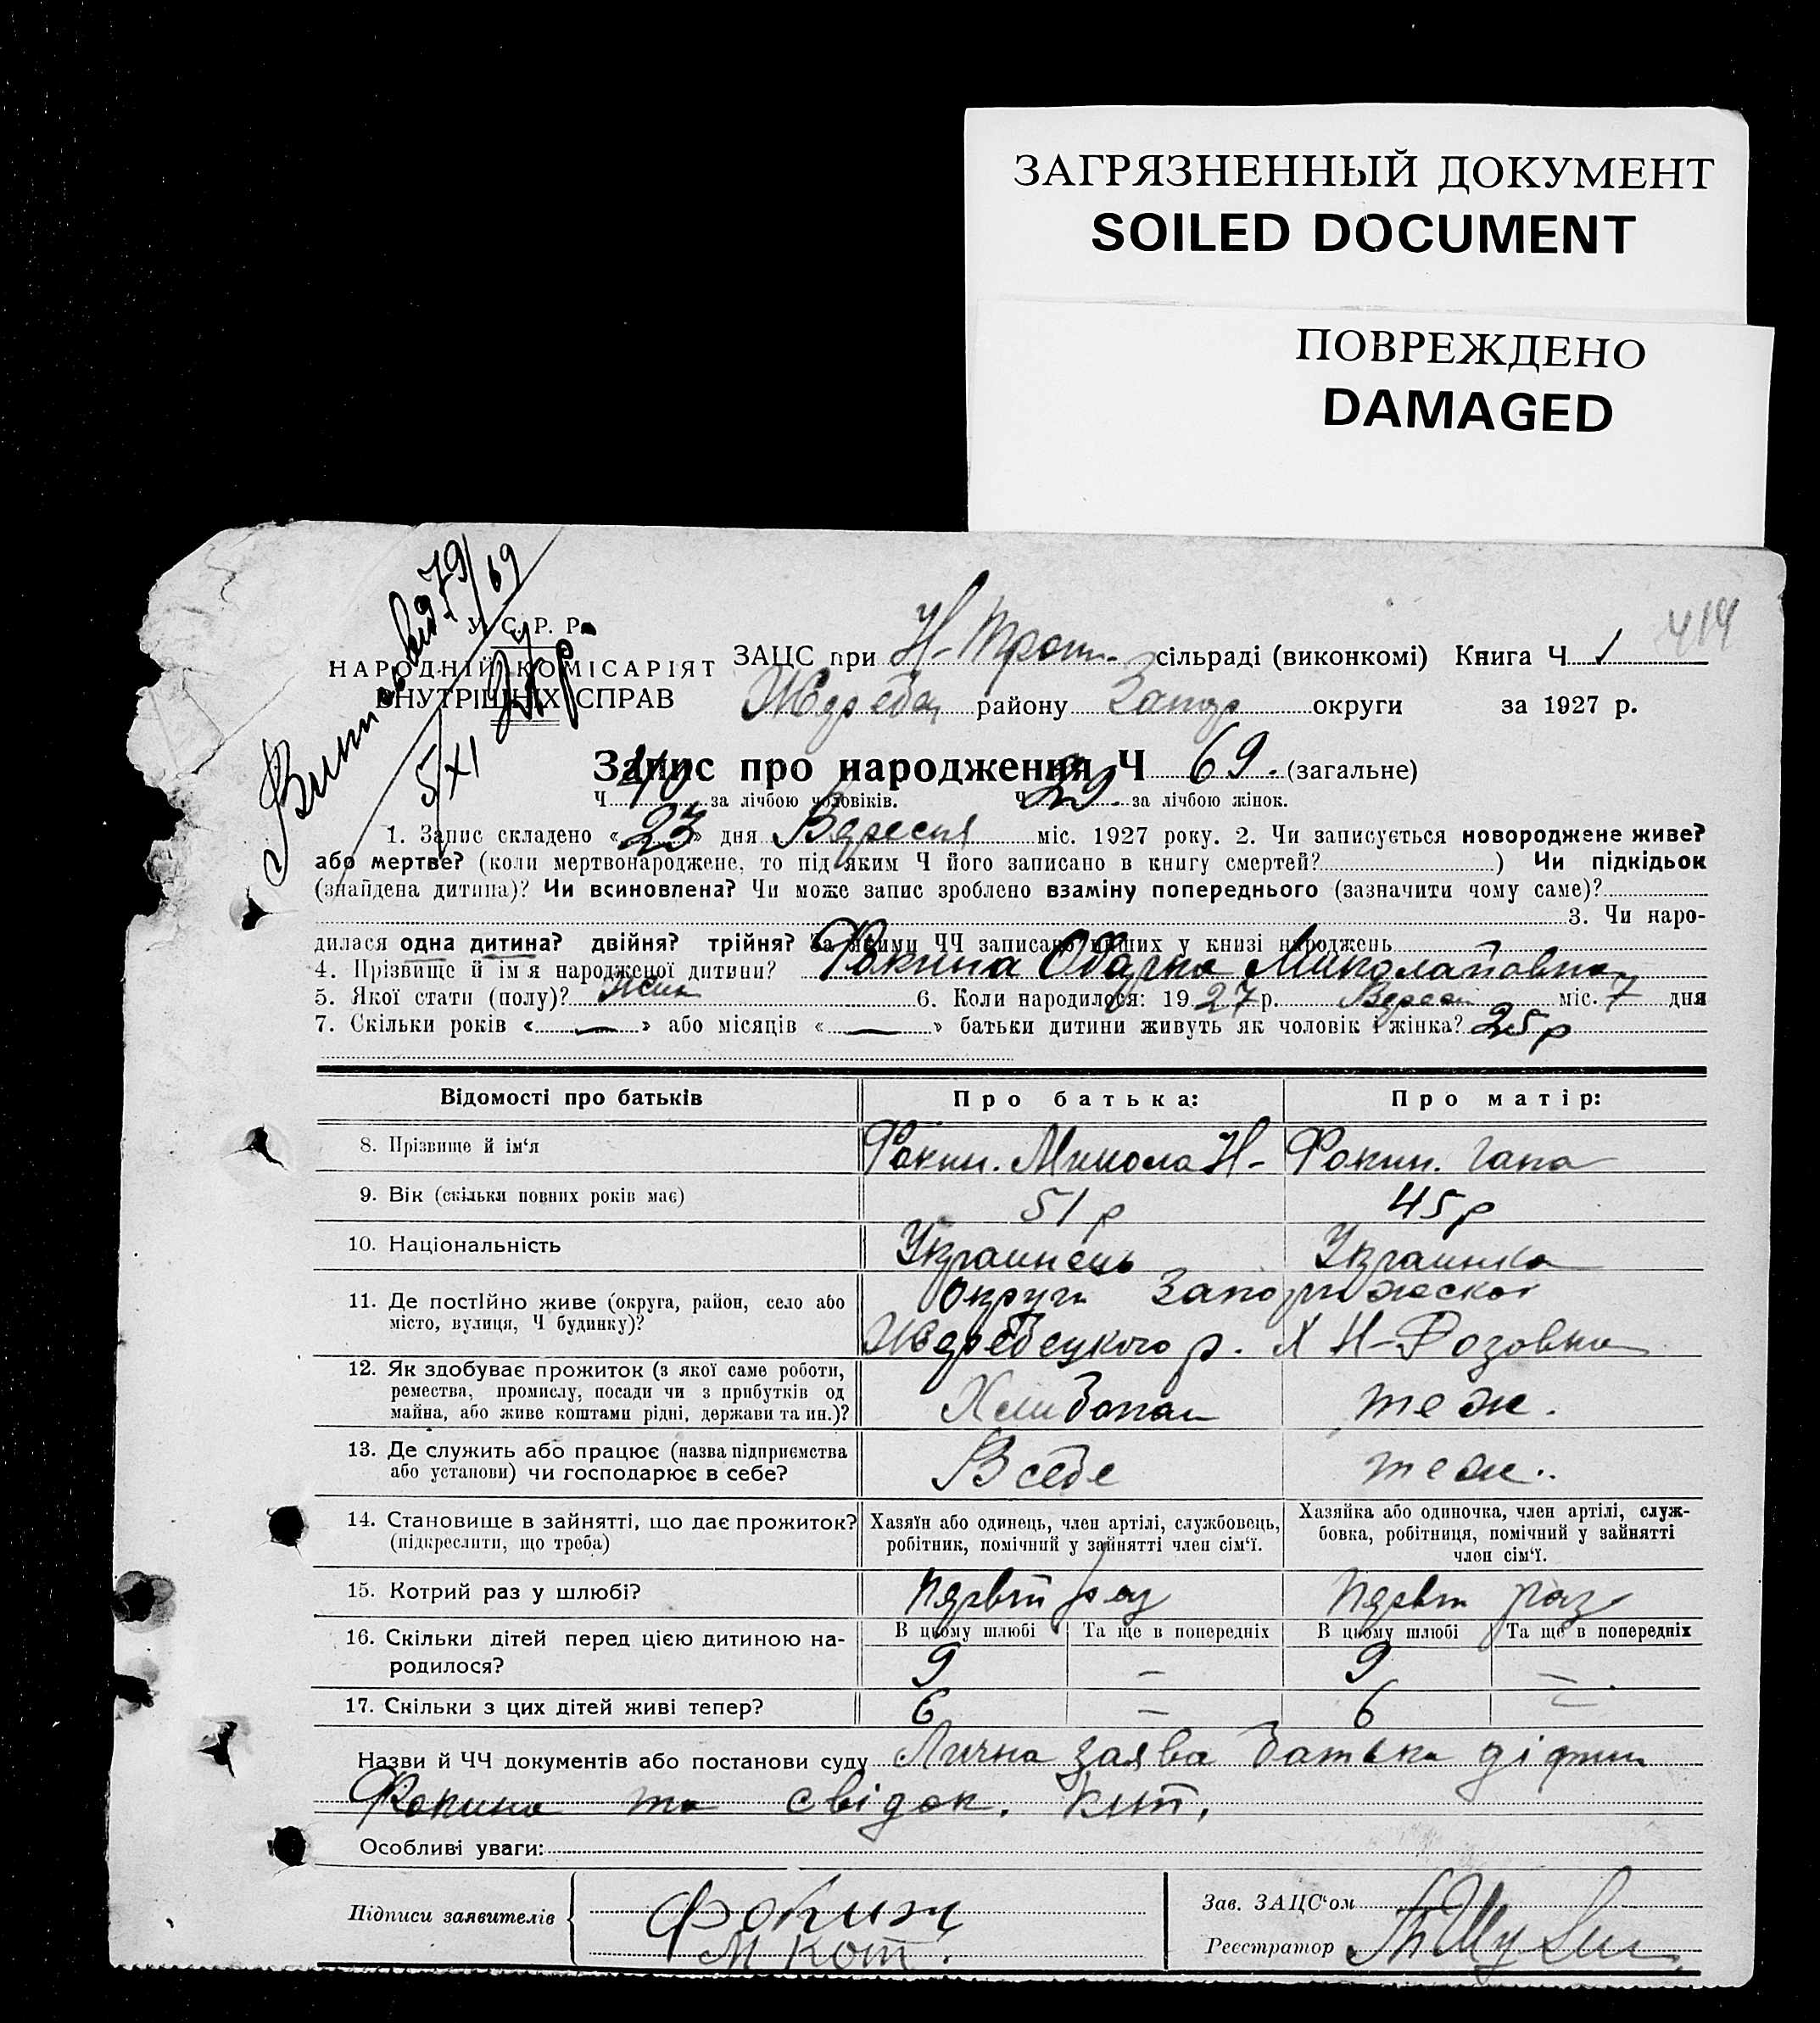 ЗАГРЯЗНЕННЫЙ ДОКУМЕНТ
SOILED DOCUMENT
ПОВРЕЖДЕНО
DAMAGED
79/69
5/XI 27 р.
414
У. С. Р. Р.
НАРОДНІЙ КОМІСАРІЯТ
ВНУТРІШНІХ СПРАВ
ЗАЦС при Н- сільраді (виконкомі) Книга Ч 1
району Запор округи за 1927 р.
Запис про народження Ч 69. (загальне)
Ч 40 за лічбою чоловіків. Ч 29. за лічбою жінок.
1. Запис складено «23» дня Вересня міс. 1927 року. 2. Чи записується новороджене живе?
або мертве? (коли мертвонароджене, то під яким Ч його записано в книгу смертей? ) Чи підкідьок
(знайдена дитина)? Чи всиновлена? Чи може запис зроблено взаміну попереднього (зазначити чому саме)?
3. Чи наро-
дилася одна дитина? двійня? трійня? За якими ЧЧ записано инших у книзі народжень
4. Прізвище й ім'я народженої дитини? Фокина Одарка Миколайовна
5. Якої стати (полу)? Жин 6. Коли народилося: 1927 р. Верес міс. 7 дня
7. Скільки років «—» або місяців «—» батьки дитини живуть як чоловік і жінка? 25 р
Відомості про батьків Про батька: Про матір:
8. Прізвище й ім'я Фокин. Микола Н- Фокин. Гапа
9. Вік (скільки повних років має) 51 р 45 р
10. Національність Украинець Украинка
11. Де постійно живе (округа, район, село або Округи
місто, вулиця, Ч будинку)? Жеребецкого р. Х Н-
12. Як здобуває прожиток (з якої саме роботи,
ремества, промислу, посади чи з прибутків од
майна, або живе коштами рідні, держави та ин.)? теж.
13. Де служить або працює (назва підприємства
або установи) чи господарює в себе? В себе теж..
14. Становище в зайнятті, що дає прожиток? Хазяїн або одинець, член артілі, службовець, Хазяйка або одиночка, член артілі, служ-
(підкреслити, що треба) робітник, помічний у зайнятті член сім'ї. бовка, робітниця, помічний у зайнятті
член сім'ї.
15. Котрий раз у шлюбі? раз раз
16. Скільки дітей перед цією дитиною на- В цьому шлюбі Та ще в попередніх В цьому шлюбі Та ще в попередніх
родилося? 9 — 9 —
17. Скільки з цих дітей живі тепер? 6 — 6 —
Назви й ЧЧ документів або постанови суду Лична заява батька
Фокина та свідок. Кит.
Особливі уваги:
Підписи заявителів Фокин
М Кот.
Зав. ЗАЦС'ом
Реєстратор